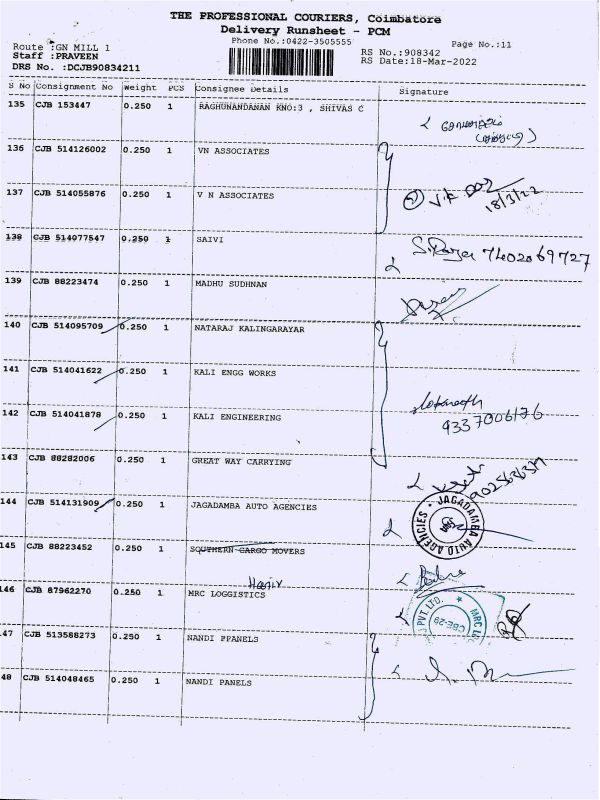 THE PROFESSIONAL COURIERS, Coimbatore
Delivery Runsheet - PCM
Phone No.:0422-3505555
Page No.:11
Route :GN MILL 1
Staff :PRAVEEN
DRS No. :DCJB90834211
RS No.:908342
RS Date:18-Mar-2022
S No Consignment No Weight PCS Consignee Details Signature
135 CJB 153447 0.250 1 RAGHUNANDANAN KNO:3 , SHIVAS C
136 CJB 514126002 0.250 1 VN ASSOCIATES
137 CJB 514055876 0.250 1 V N ASSOCIATES
18/3/22
138 CJB 514077547 0.250 1 SAIVI
7402069727
139 CJB 88223474 0.250 1 MADHU SUDHNAN
140 CJB 514095709 0.250 1 NATARAJ KALINGARAYAR
141 CJB 514041622 0.250 1 KALI ENGG WORKS
142 CJB 514041878 0.250 1 KALI ENGINEERING
9337006176
143 CJB 88282006 0.250 1 GREAT WAY CARRYING
144 CJB 514131909 0.250 1 JAGADAMBA AUTO AGENCIES
JAGADAMBA AUTO AGENCIES
145 CJB 88223452 0.250 1 SOUTHERN CARGO MOVERS
146 CJB 87962270 0.250 1 MRC LOGGISTICS
PVT. LTD. * MRC
CBE-28
47 CJB 513588273 0.250 1 NANDI PPANELS
48 CJB 514048465 0.250 1 NANDI PANELS